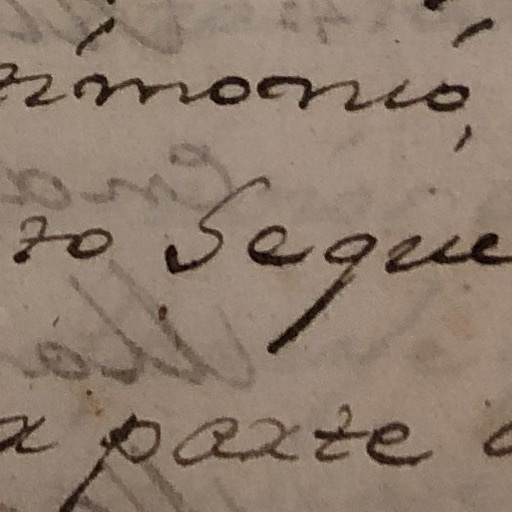 rimonio,
to Segue
a parte